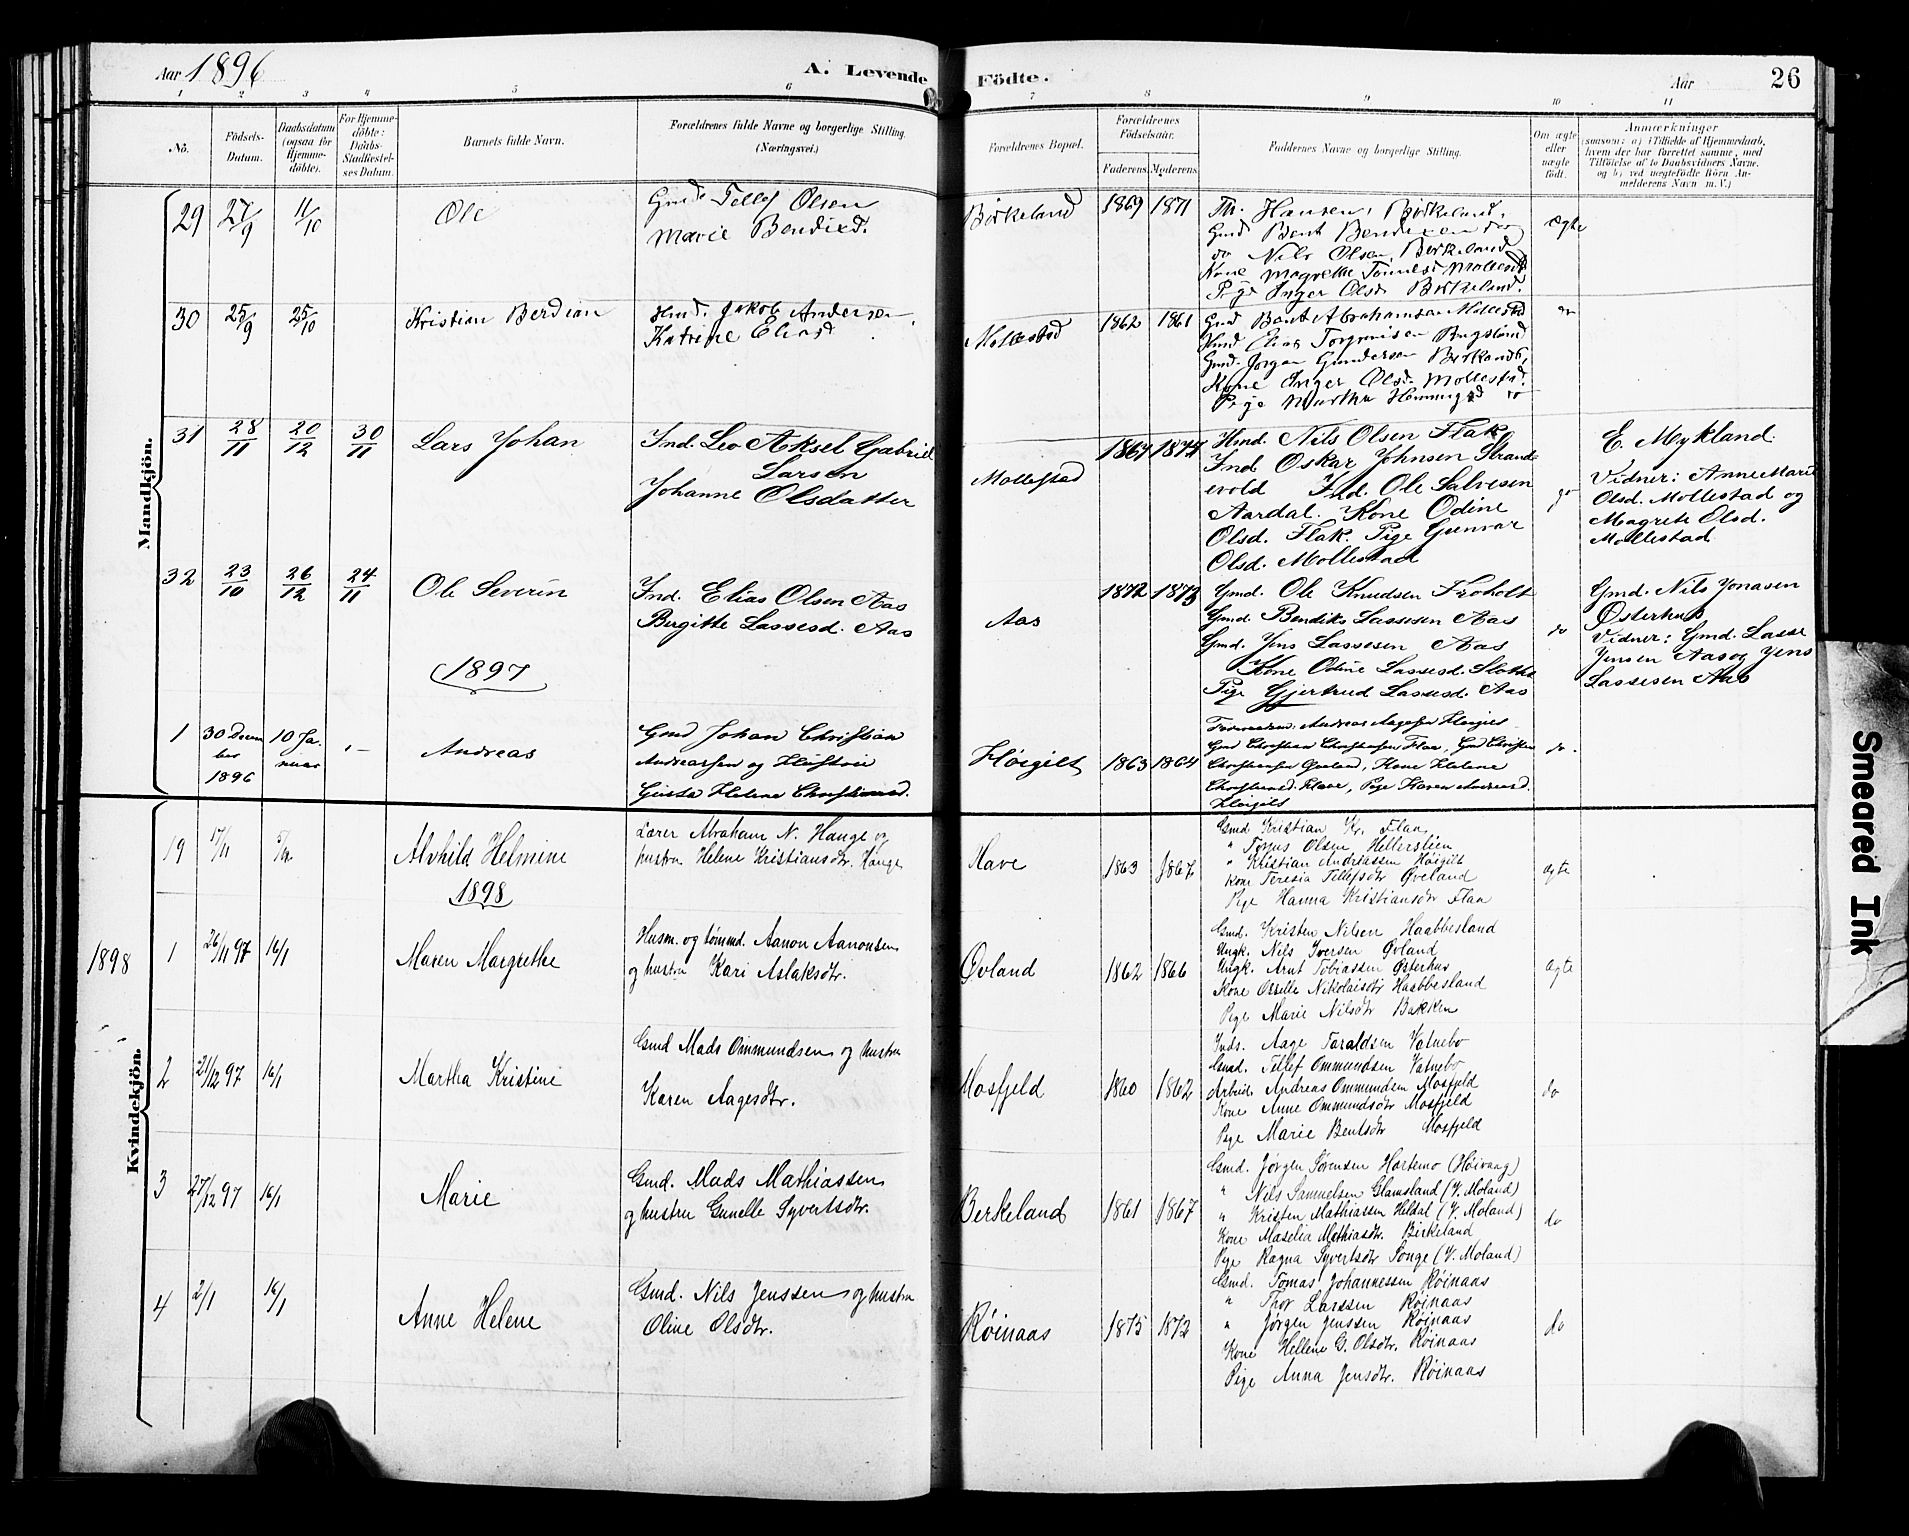 Aar 1896
A. Levende Födte.
Aar
26
1 2 3 4 5 6 7 8 9 10 11
Nö.
Födsels-
Datum.
Daabsdatum
(ogsaa for
Hjemme-
döbte).
For Hjemme-
döbte:
Daabs-
Stadfæstel-
ses Datum.
Barnets fulde Navn.
Forældrenes fulde Navne og borgerlige Stilling.
(Næringsvei.)
Forældrenes Bopæl.
Forældrenes
Födselsaar.
Faderens. Moderens.
Faddernes Navne og borgerlige Stilling.
Om ægte
eller
uægte
födt.
Anmærkninger
(saasom: a) i Tilfælde af Hjemmedaab,
hvem der har forrettet samme, med
Tilföielse af to Daabsvidners Navne,
og b) ved uegtefödte Börn An-
melderens Navn m. V.)
Mandkjön.
29 27/9 11/10
Ole
Gmd Tellef Olsen
Marie Bendixd.
Birkeland
1869 1871
Th. Hansen, Birkeland,
Gmd Bent Bendixen do
do Nils Olsen, Birkeland
Kone Magrethe Tønnesd Mollestad
Pige Inger Olsd Birkeland.
ægte
30 25/9 25/10
Kristian Berdian
Hmd. Jakob Andersen,
Katrine Eliasd
Mollestad
1862 1861
Gmd Bent Abrahamsen Mollestad
Hmd Elias Torgersen
Gmd. Jørgen Gundersen Birkeland,
Kone Inger Olsd. Mollestad.
Pige Martha Hemmingsd do
31 28/11 20/12 30/11
Lars Johan
Ind. Leo Aksel Gabriel
Larsen
Johanne Olsdatter
Mollestad
1867 1874
Hmd. Nils Olsen Flak
Ind Oskar Johnsen Strande
vold Ind. Ole Salvesen
Aardal. Kone Odine
Olsd. Flak. Pige Gunvor
Olsd. Mollestad
E. Mykland.
Vidner: Anne Marie
Olsd. Mollestad og
Magrete Olsd.
Mollestad
32 23/10 26/12 24/11
Ole Severin
Ind. Elias Olsen Aas
Birgitte Lassesd. Aas
Aas
1872 1873
Gmd. Ole Knudsen Froholt
Gmd. Bendik Lassesen Aas
Gmd. Jens Lassesen Aas
Kone Odine Lassesd.
Pige Gjertrud Lassesd. Aas
do
Gmd. Nils Jonasen
Østerhus
Vidner: Gmd. Lasse
Jensen Aas og Jens
Lassesen Aas
1897
1 30 Decem
ber
1896
10 Ja.
nuar
,—
Andreas
Gmd Johan Christian
Andreassen og Hustru
Helene Christiansd.
Høigilt
1863 1864
Andreas Aagesen Høigilt
Gmd Christian Christiansen Flaa, Gmd Christen
Christiansen Øveland, Kone Helene
Christiansd. Klave, Pige Karen Andreasd.
Høigilt
do.
Kvindekjön.
19 17/11
Alvhild Helmine
Lærer Abraham N. Hauge og
hustru Helene Kristiansdtr. Hauge
Klave
1863 1867
Gmd Kristian Kr. Flaa,
" Torjus Olsen Hellerslien
" Kristian Andreassen Høigilt
Kone Teresia Tellefsdtr Øveland
Pige Hanna Kristiansdtr Flaa
ægte
1898
1898
1 26/11 97 16/1
Maren Margrethe
Husm. og tømmd. Aanon Aanonsen
og hustru Kari Aslaksdtr.
Øvland
1862 1866
Gmd. Kristen Nilsen Haabbesland
Ungk. Nils Iversen Øvland
Ungk. Arnt Tobiassen Østerhus
Kone Osselle Nikolaisdtr Haabbesland
Pige Marie Nilsdtr Bakken
ægte
2 21/12 97 16/1
Martha Kristine
Gmd Mads Ommundsen og hustru
Karen Aagesdtr.
Mosfjeld
1860 1862
Inds. Aage Taraldsen Vatnebo
Gmd. Tellef Ommundsen Vatnebo
Arbeid. Andreas Ommundsen Mosfjeld
Kone Anne Ommundsdtr Mosfjeld
Pige Marie Bentsdtr Mosfjeld
do
3 27/12 97 16/1
Marie
Gmd. Mads Mathiassen
og hustru Gunelle Syvertsdtr.
Birkeland
1861 1867
Gmd. Jørgen Sørensen Hortemo (Høivaag)
" Nils Samuelsen Glamsland (V. Moland)
" Kristen Mathiassen Heldal (V. Moland)
Kone Maselia Mathiasdtr. Birkeland
Pige Ragna Syvertsdtr Songe (V. Moland)
do
4 2/1 16/1
Anne Helene
Gmd. Nils Jenssen og hustru
Oline Olsdtr.
Røinaas
1875 1872
Gmd. Tomas Johannessen Røinaas
" Thor Larssen Røinaas
" Jørgen Jenssen Røinaas
Kone Hellene G. Olsdtr. Røinaas
Pige Anna Jensdtr. Røinaas
do
Smeared Ink